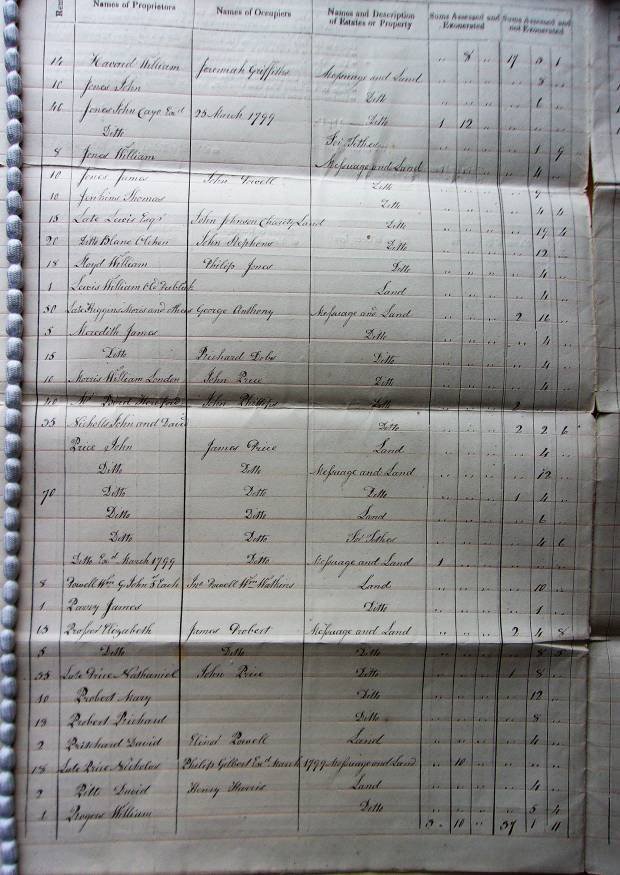 Names of Proprietors Names of Occupiers Names and Description of Estates or Property Sums Assessed and Exonerated Sums Assessed and not Exonerated
14 Havard William Jeremiah Griffiths Messuage and Land " 8 " 17 8 1
10 Jones John Ditto " " " " 6 "
46 Jones John Cayo Exd 25 March 1799 Ditto 1 12 "
Ditto For Tithes " " " " 1 9
8 Jones William Messuage and Land " " " " 4 "
10 Jones James John Powell Ditto
10 Jenkins Thomas Ditto " " " " 4 4
15 Late Lewis Esqr John Johnson Charity Land Ditto " " " " 19 4
20 Ditto John Stephens Ditto " " " " 12 "
18 Lloyd William Philip Jones Ditto " " " " 4 "
1 Lewis William Land " " " " 4 "
30 Late Higgins and others George Anthony Messuage and Land " " " 2 16 "
5 Meredith James Ditto " " " " 4 "
15 Ditto Prichard Ditto " " " " 4 "
10 Morris William London John Price Ditto " " " " 4 "
40 John Phillips Ditto " " " 2
35 Nicholls John and David Ditto " " " 2 2 6
Price John James Price Land " " " " 4 "
Ditto Ditto Messuage and Land " " " " 12 "
70 Ditto Ditto Ditto " " " 1 4 "
Ditto Ditto Land " " " " 6 "
Ditto Ditto For Tithes " " " " 4 6
Ditto Exd March 1799 Ditto Messuage and Land 1 " " " " "
8 Powell Wm & John Each Jno Powell Wm Watkins Land " " " " 10 "
1 Parry James Ditto " " " " 1 "
13 Prosser Elizabeth James Probert Messuage and Land " " " 2 4 8
5 Ditto Ditto Ditto " " " " 8 5
35 Late Price Nathaniel John Price Ditto " " " 1 8 "
10 Probert Mary Ditto " " " " 12 "
13 Probert Richard Ditto " " " " 8 "
2 Pritchard David Elinor Powell Land " " " " 4 "
18 Late Price Nicholas Philip Gilbert Exd March 1799 Messuage and Land " 10 " " " "
2 David Henry Harris Land " " " " 4 "
1 Rogers William Ditto " " " " 5 4
3 10 " 37 1 11